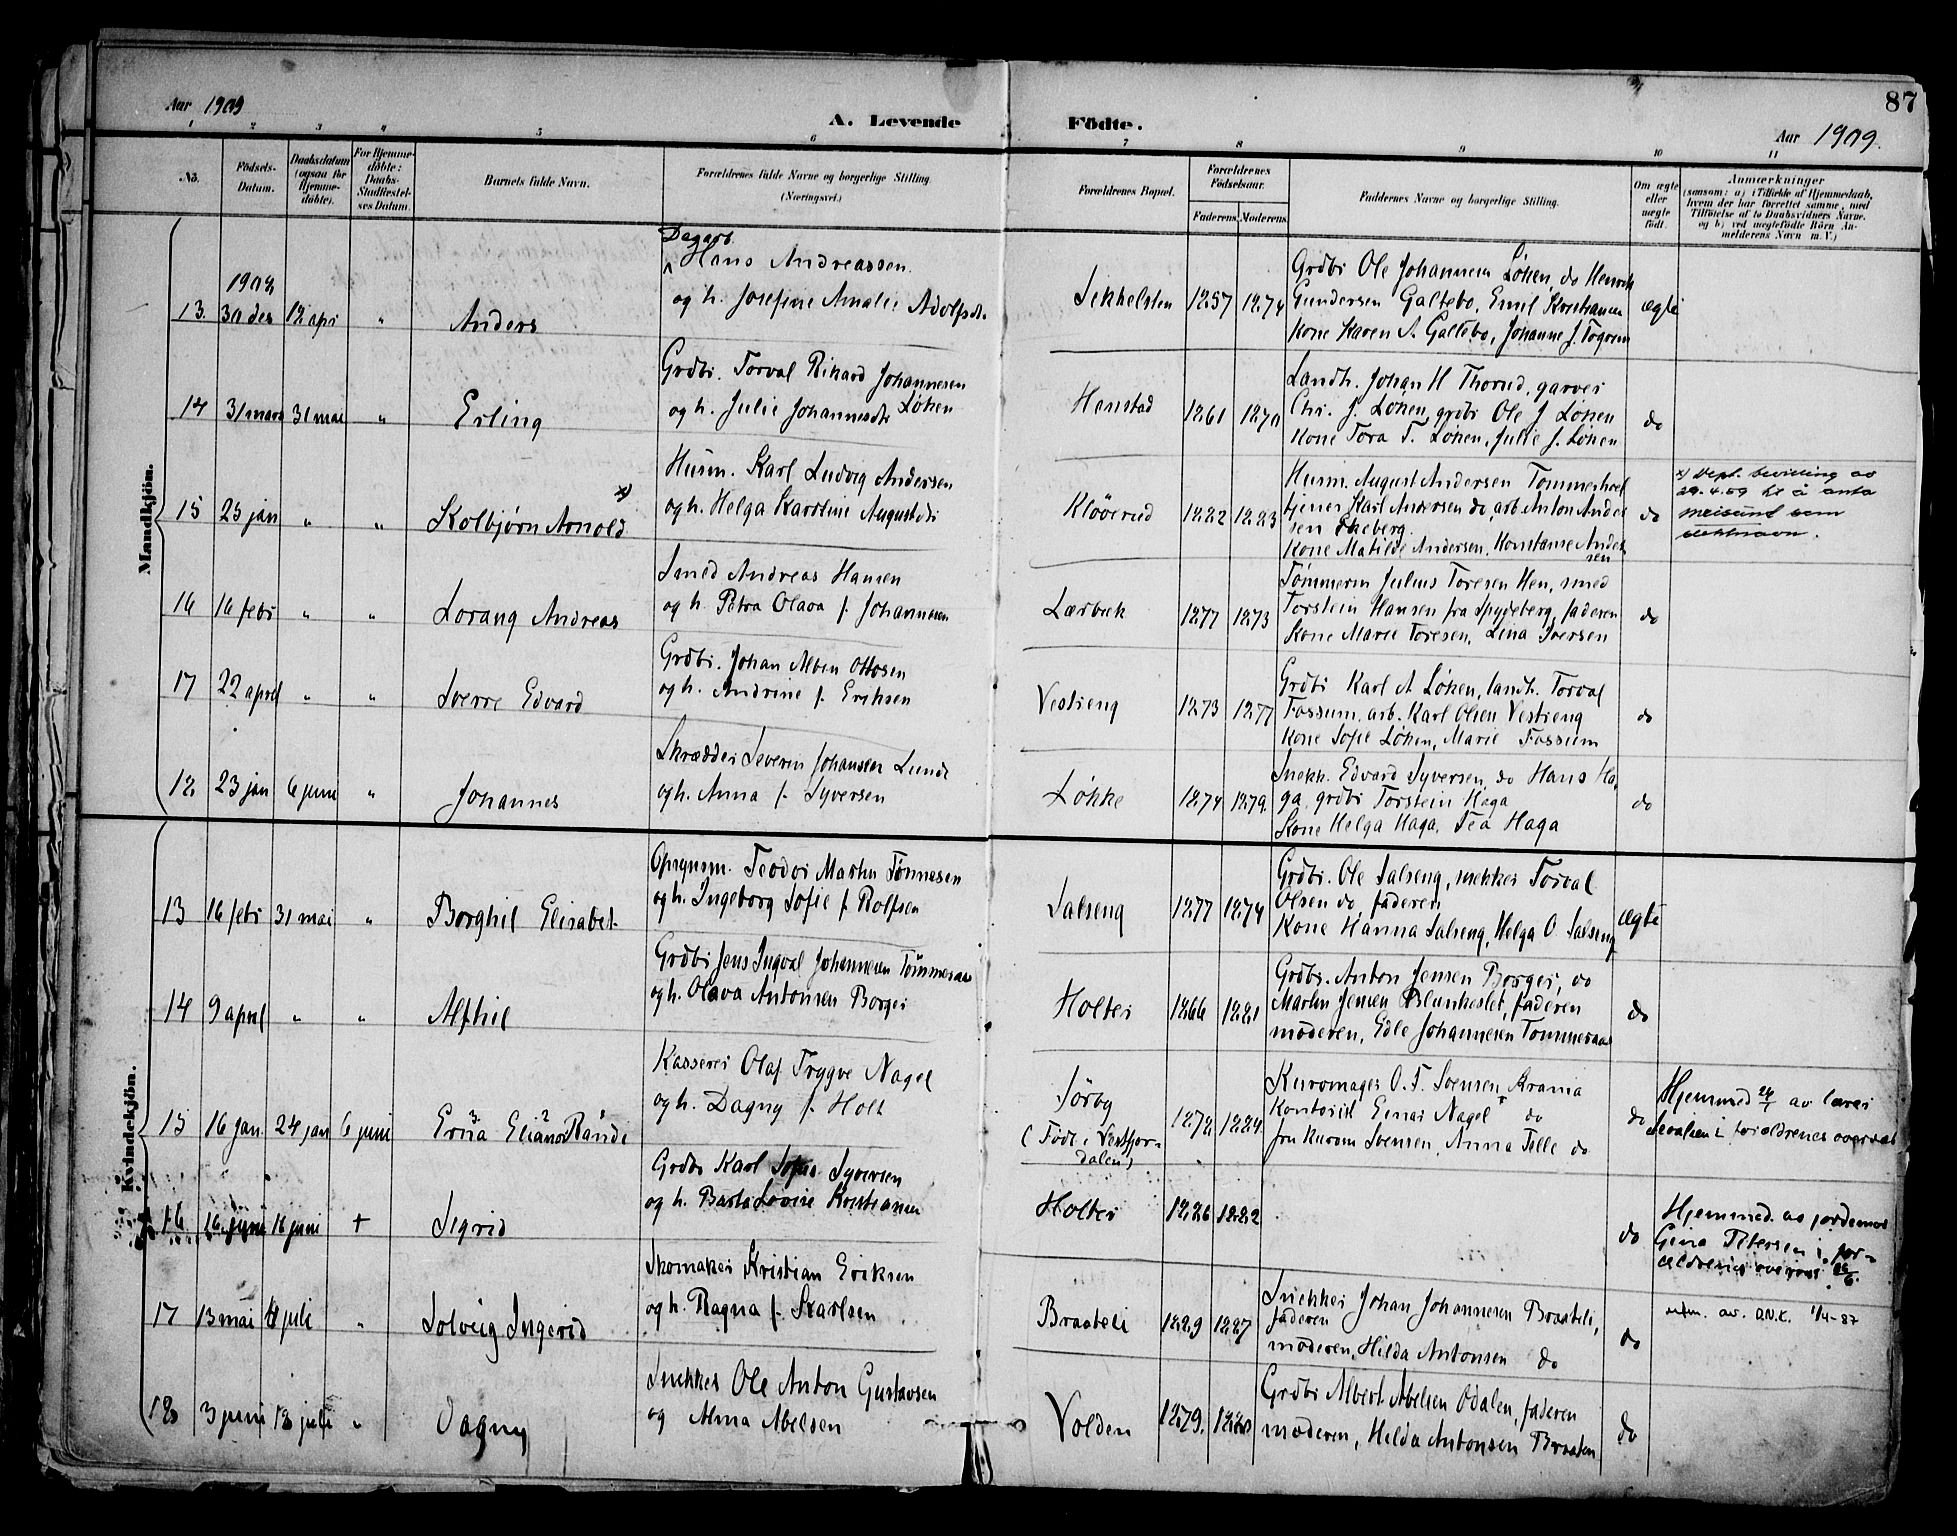 87
Aar 1909
A. Levende Födte.
Aar 1909.
1 2 3 4 5 6 7 8 9 10 11
No.
Födsels-
Datum.
Daabsdatum
(ogsaa for
Hjemme-
döbte).
For Hjemme-
döbte:
Daabs-
Stadfæstel-
ses Datum.
Barnets fulde Navn.
Forældrenes fulde Navne og borgerlige Stilling
(Næringsvei.)
Forældrenes Bopæl.
Forældrenes
Födselsaar.
Faderens. Moderens.
Faddernes Navne og borgerlige Stilling.
Om ægte
eller
uægte
født.
Anmærkninger
(saasom: a) i Tilfælde af Hjemmedaab,
hvem der har forrettet samme, med
Tilföielse af to Daabsvidners Navne,
og b) ved uægtefødte Börn An-
melderens Navn m. V.)
Mandkjön.
Dagarb.
1908
13. 30 des 12 apr " Anders
Hans Andreassen
og h. Josefine Amalie Adolfsdt.
Sekkelsten 1857 1874
Grdbr Ole Johannesen Löken, do Henrik
Gundersen Galtebo, Emil Kristiansen
Kone Karen A. Galtebo, Johanne J.
ægte
14 31 mars 31 mai " Erling
Grdbr. Torval Rikard Johannesen
og h. Julie Johannesdt Löken
Henstad 1861 1870
Landh. Johan H Thorud, garver
Chr. J. Löken, grdbr Ole J Löken
Kone Tora T. Löken, Julie J. Löken
do
15 25 jan " " Kolbjørn Arnold x)
Husm. Karl Ludvig Andersen
og h. Helga Karoline Augustdt
Kløverud 1882 1883
Husm. August Andersen
tjener Karl Andersen do, arb. Anton Ander
sen
Kone Matilde Andersen, Konstanse Ander
sen
do
x) Dept. bevilling av
29.4.59 til å anta
som
slektsnavn.
16 16 febr " " Lorang Andreas
Smed Andreas Hansen
og h. Petra Olava f. Johannesen
Lærbæk 1877 1873
Tømmerm Julius Toresen Hen, smed
Torstein Hansen fra Spydeberg, faderen
Kone Marie Toresen, Lina Iversen
do
17 22 april " " Sverre Edvard
Grdbr. Johan Alben Ottosen
og h. Andrine f. Eriksen
Vestieng 1873 1877
Grdbr Karl A. Löken, landh. Torval
Fossum, arb. Karl Olsen Vestieng
Kone Sofie Löken, Marie Fossum
do
18 23 jan 6 juni " Johannes
Skrædder Severin Johansen Lunde
og h. Anna f. Syversen
Løkke 1874 1879.
Snekk. Edvard Syversen, do Hans Ha-
ga, grdbr Torstein Haga
Kone Helga Haga, Tea Haga
do
Kvindekjön.
13 16 febr 31 mai " Borghil Elisabet
Opsynsm. Teodor Martin Tönnesen
og h. Ingeborg Sofie f. Rolfsen
Salseng 1877 1874
Grdbr. Ole Salseng, snekker Torval
Olsen do, faderen
Kone Hanna Salseng, Helga O. Salseng
ægte
14 9 april " " Alfhil
Grdbr Jens Ingval Johannesen Tömmeraas
og h. Olava Antonsen Borger
Holter 1866 1881
Grdbr. Anton Jensen Borger, do
Martin Jensen Blunkeslet, faderen
moderen, Edle Johannesen Tömmeraas
do
15 16 jan. 24 jan 6 juni Erna 3 Elianor 2 Randi
Kasserer Olaf Trygve Nagel
og h. Dagny f. Holt
Sörby
(Födt i Vestfjor-
dalen)
1878 1884
Kurvmager O. F. Svensen, Krania
Kontorist Einar Nagel do
fru Kurvm Svensen, Anna Telle do
do
Hjemmed 24/1 av lærer
i forældrenes overvær
16 16 juni 16 juni + Sigrid
Grdbr Karl Syversen
og h. Lovise Kristiansen
Holter 1886 1882
do
Hjemmed. av jordemor
Gina Petersen i for-
ældrenes overvær 16/6.
17 13 mai 4 juli " Solveig Ingerid
Skomaker Kristian Eriksen
og h. Ragna f. Karlsen
Braateli 1889 1887
Snekker Johan Johannesen Braateli,
faderen
moderen, Hilda Antonsen do
do
utm. av. D.N.K. 1/4-87
18 3 juni 18 juli " Dagny
Snekker Ole Anton Gustavsen
og Alma Abelsen
Volden 1879. 1880
Grdbr Albert Abelsen Odalen, faderen
moderen, Hilda Antonsen Braaten
do